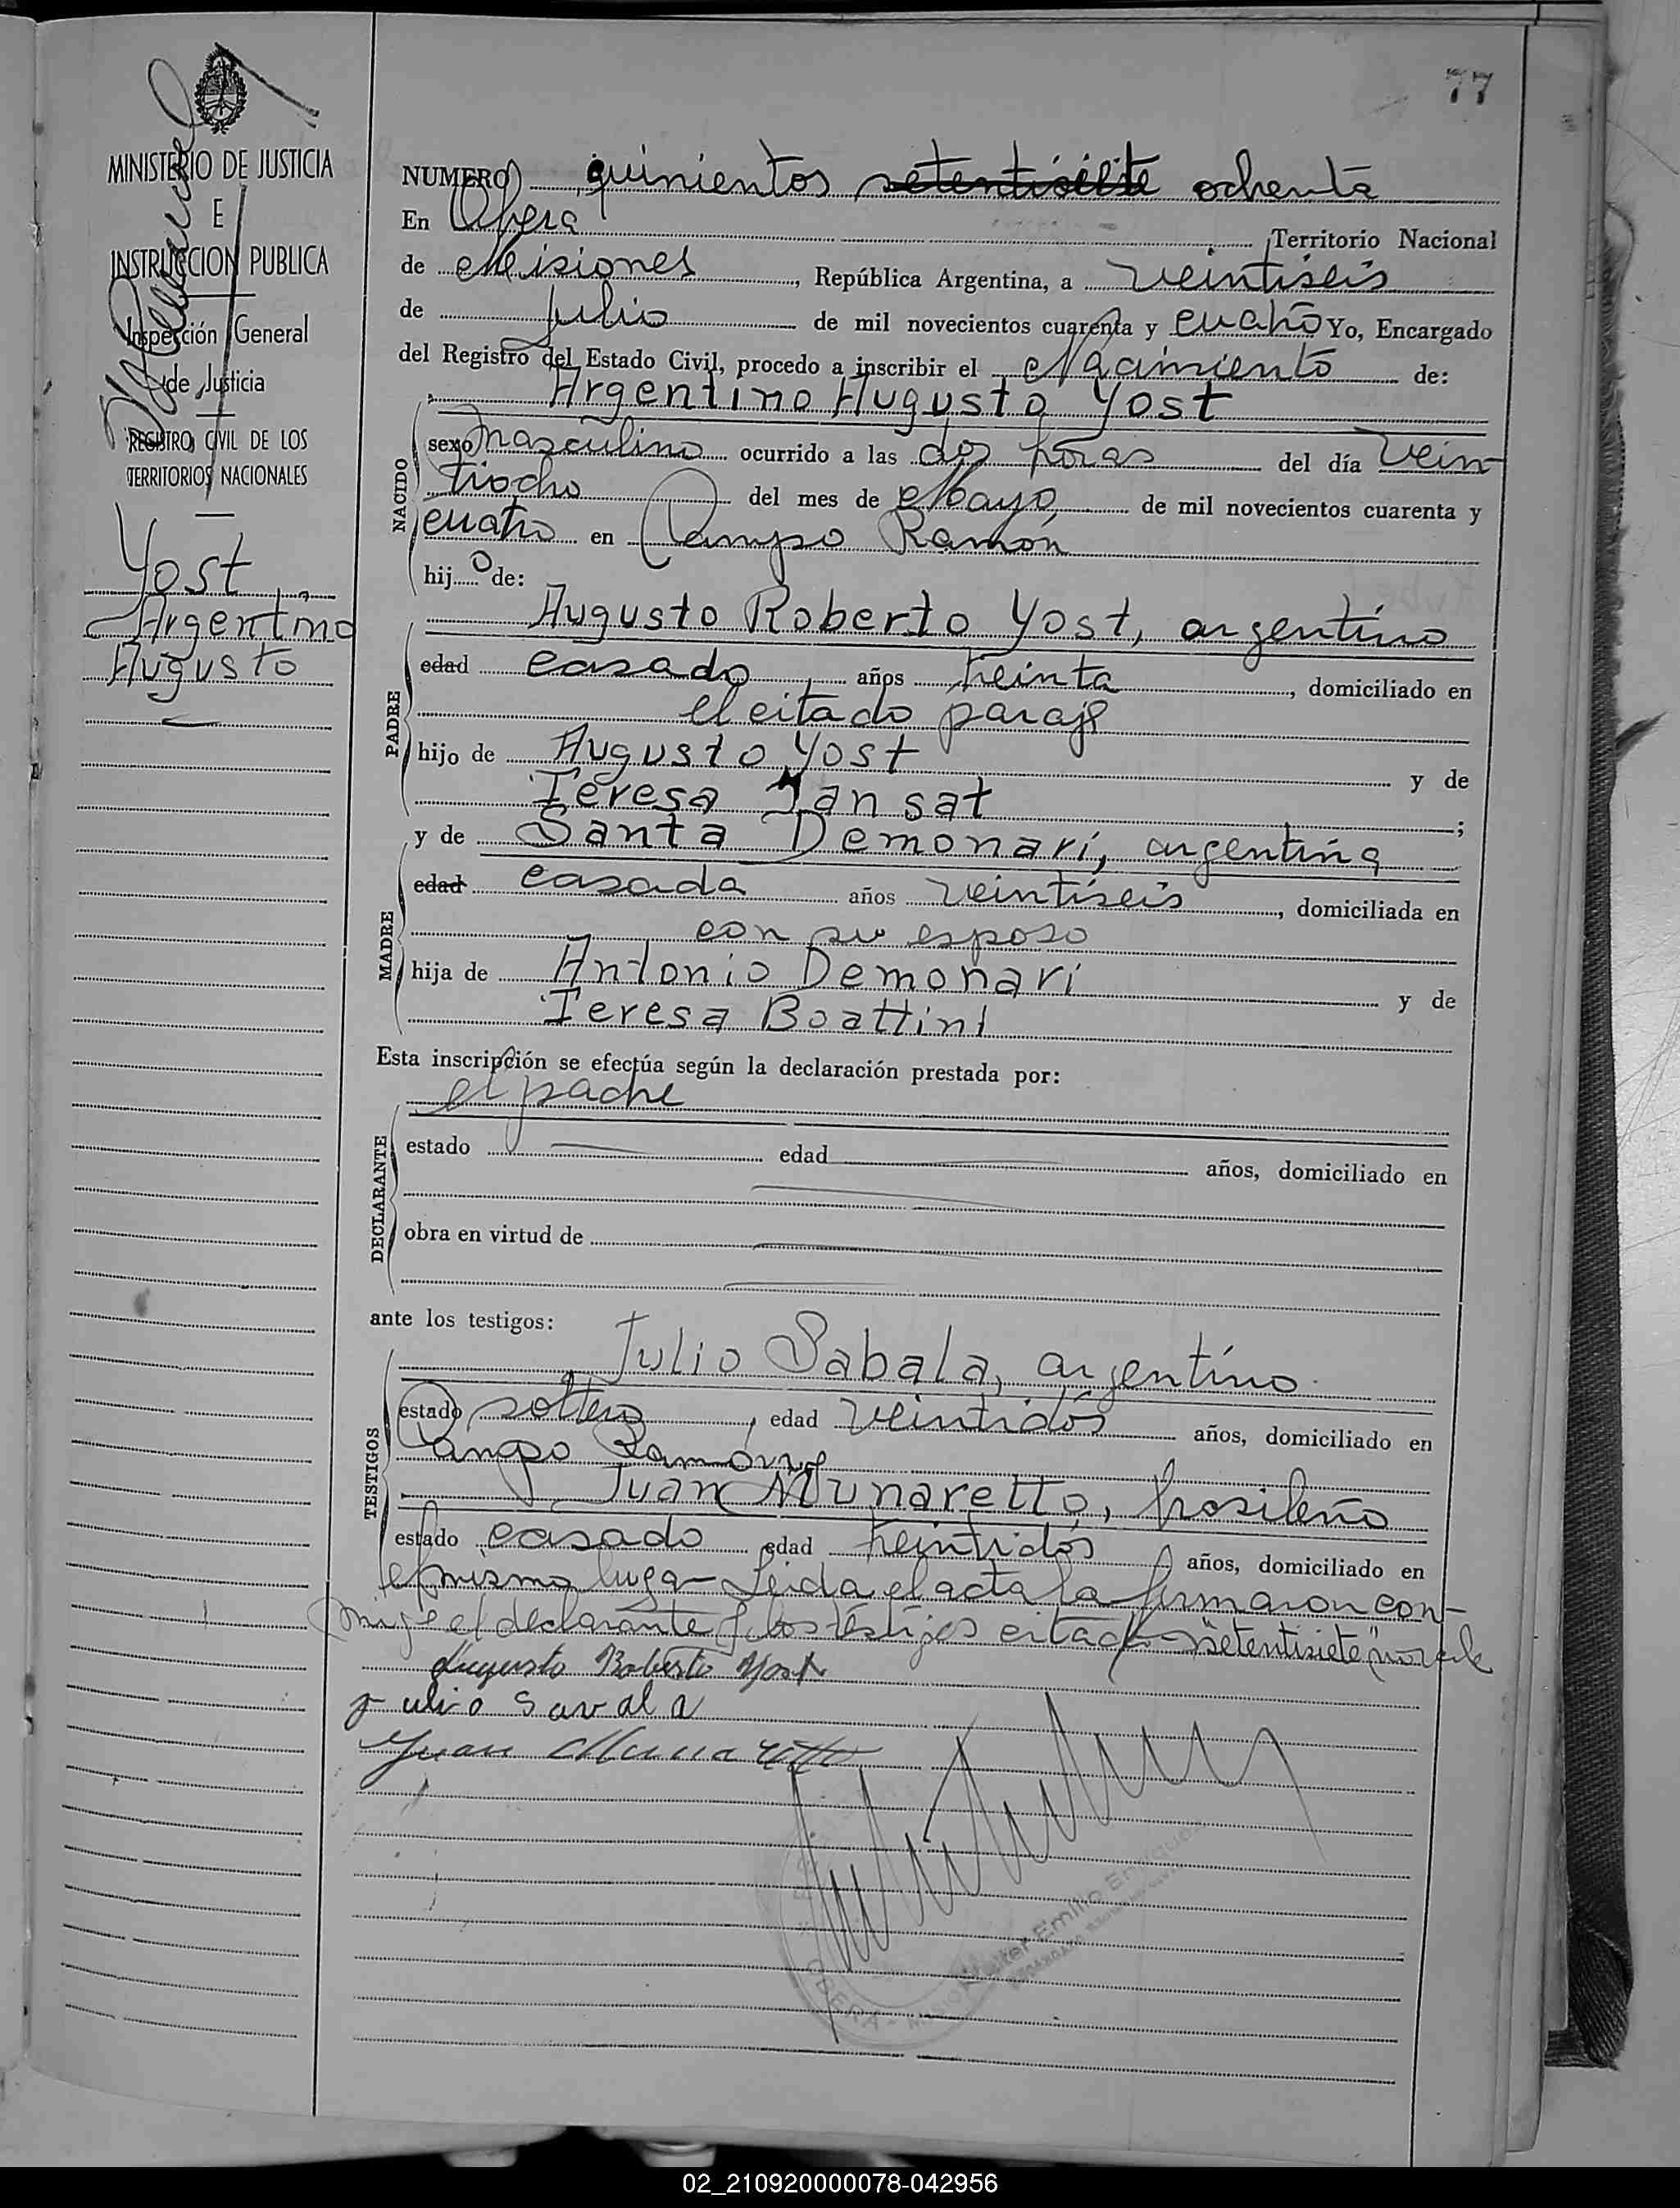 77
MINISTERIO DE JUSTICIA
E
INSTRUCCION PUBLICA
Inspección General
de Justicia
REGISTRO CIVIL DE LOS
TERRITORIOS NACIONALES
Yost
Argentino
Augusto
NUMERO quinientos setentisiete ochenta
En Oberá Territorio Nacional
de Misiones, República Argentina, a veintiseis
de Julio de mil novecientos cuarenta y cuatro Yo, Encargado
del Registro del Estado Civil, procedo a inscribir el Nacimiento de:
Argentino Augusto Yost
NACIDO
sexo masculino ocurrido a las dos horas del día vein-
tiocho del mes de Mayo, de mil novecientos cuarenta y
cuatro en Campo Ramón
hijo de:
Augusto Roberto Yost, argentino
PADRE
edad casado, años treinta, domiciliado en
el citado paraje
hijo de Augusto Yost y de
Teresa Jansat;
y de Santa Demonari, argentina
MADRE
edad casada años veintiseis, domiciliada en
con su esposo
hija de Antonio Demonari y de
Teresa Boattini
Esta inscripción se efectúa según la declaración prestada por:
el padre
DECLARANTE
estado edad años, domiciliado en
obra en virtud de
ante los testigos:
Julio Sabala, argentino
TESTIGOS
estado soltero, edad veintidós años, domiciliado en
Campo Ramón y
Juan Munaretto, brasileño
estado casado edad treintidós años, domiciliado en
el mismo lugar- Leida el acta la firmaron con-
migo el declarante y los testigos citados- "setentisiete" no vale
Augusto Roberto Yost
Julio Savala
Juan Munaretto
Walter Emilio Enrique
OBERA
02_210920000078-042956